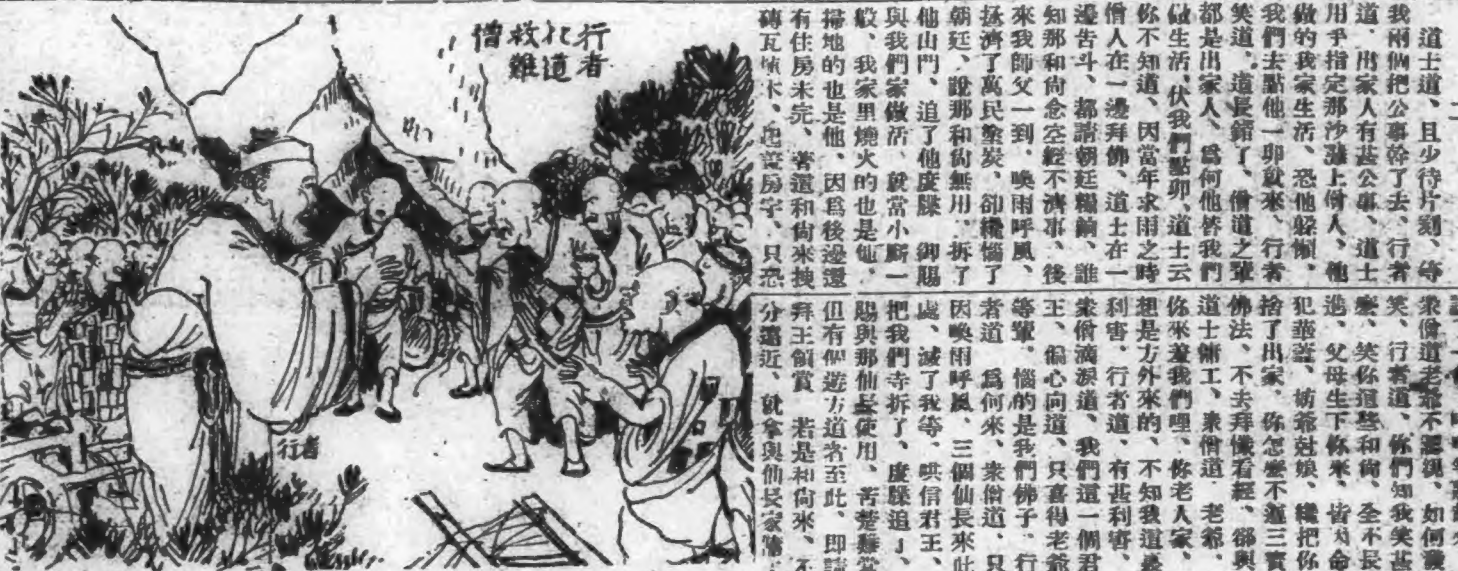 道士道、且少待片刻、等
我兩個把公事幹了去、行者
道、出家人有甚公事、道士
用手指定那沙灘上僧人、他
做的我家生活、恐他躲懶、
我們去點他一卯就來、行者
笑道、道長錯了、僧道之輩
都是出家人、爲何他替我們
做生活、伏我們點卯、道士云
你不知道、因當年求雨之時
僧人在一邊拜佛、道士在一
邊告斗、都請朝廷糧餉、誰
知那和尙念空經不濟事、後
來我師父一到、喚雨呼風、
拯濟了萬民塗炭、卻纔惱了
朝廷、說那和尙無用、拆了
他山門、追了他度牒 御賜
與我們家做活、就當小廝一
般、我家里燒火的也是他、
掃地的也是他、因爲後邊還
有住房未完、著這和尙來拽
磚瓦 木、起蓋房宇、只恐
眾僧道老爺不認親、如何發
笑、行者道、你們知我笑甚
麽、笑你這些和尙、全不長
進、父母生下你來、皆因命
犯華蓋、妨爺尅娘、纔把你
捨了出家、你怎麽不遵三寶
佛法、不去拜懺看經、卻與
道士傭工、衆僧道 老爺、
你來羞我們哩、你老人家、
想是方外來的、不知我這裏
利害、行者道、有甚利害、
衆僧滴淚道、我們這一個君
王、偏心向道、只喜得老爺
等輩、惱的是我們佛子、行
者道 爲何來、衆僧道、只
因喚雨呼風、三個仙長來此
處、滅了我等、哄信君王、
把我們寺拆了、度牒追了、
賜與那仙長使用、苦楚難當
但有個遊方道者至此、即請
拜王領賞 若是和尙來、不
分遠近、就拿與仙長家傭工
行者
化道
救難
僧
行者